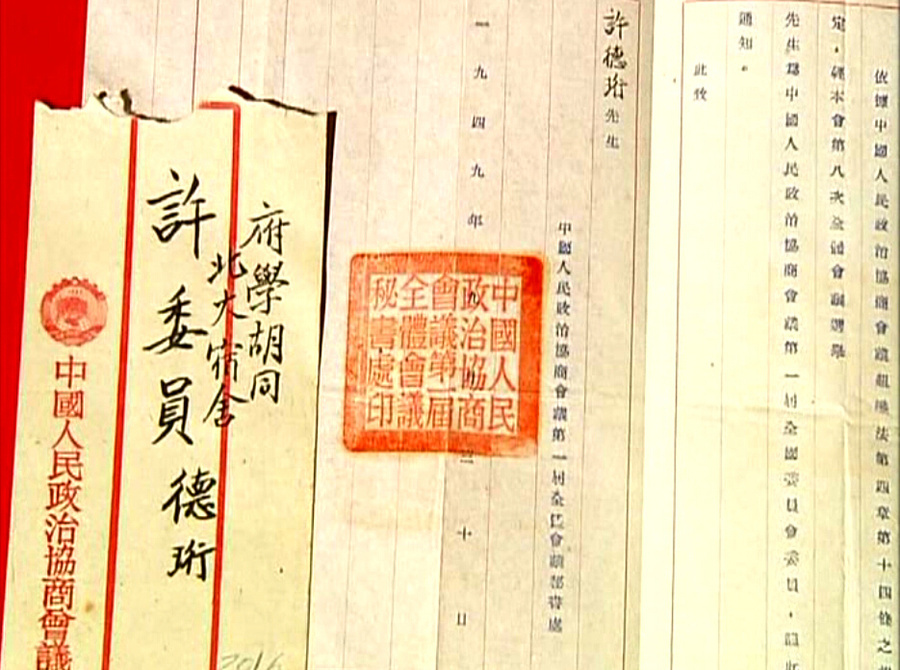 依據中國人民政治協商會議組織法第四章第十四條之
定，經本會第八次全體會議選舉
先生爲中國人民政治協商會議第一屆全國委員會委員，特此
通知。
此致
許德珩先生
中國人民政治協商會議第一屆全體會議秘書處
一九四九年三十日
中國人民
政治協商
會議第一屆
全體會議
秘書處印
府學胡同
北大宿舍
許委員德珩
中國人民政治協商會議